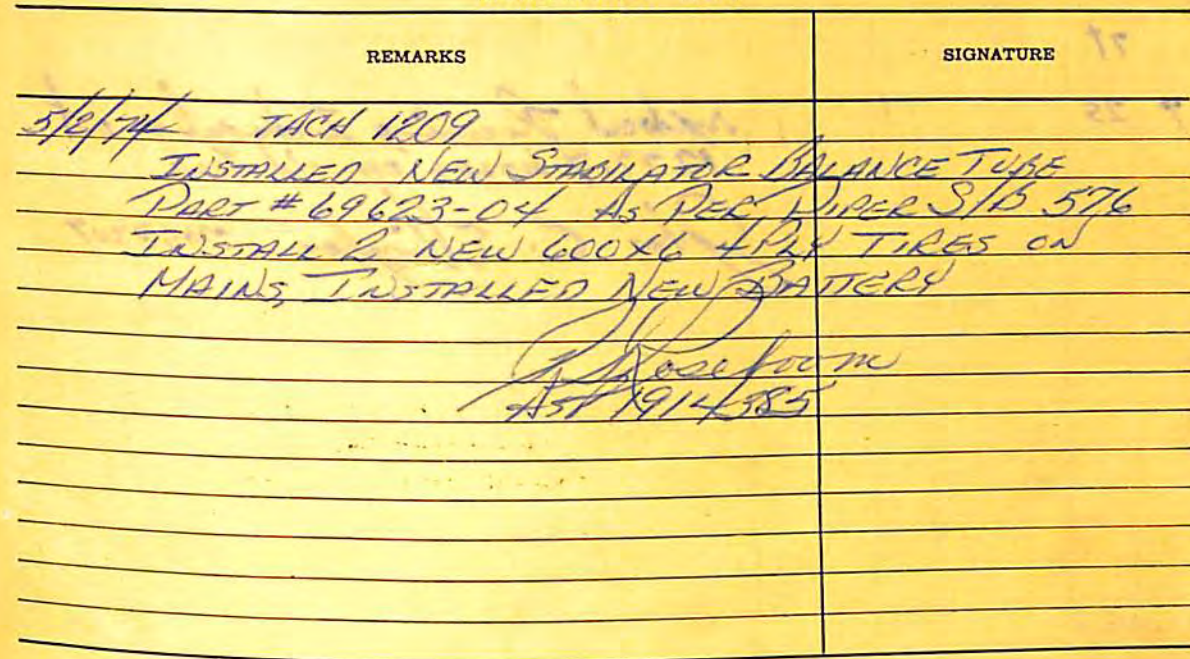 REMARKS SIGNATURE
5/2/74 TACH 1209
INSTALLED NEW STABILATOR BALANCE TUBE
PART # 69623-04 AS PER PIPER S/B 576
INSTALL 2 NEW 600X6 4 PLY TIRES ON
MAINS, INSTALLED NEW BATTERY
Roseboom
A&P 1914385